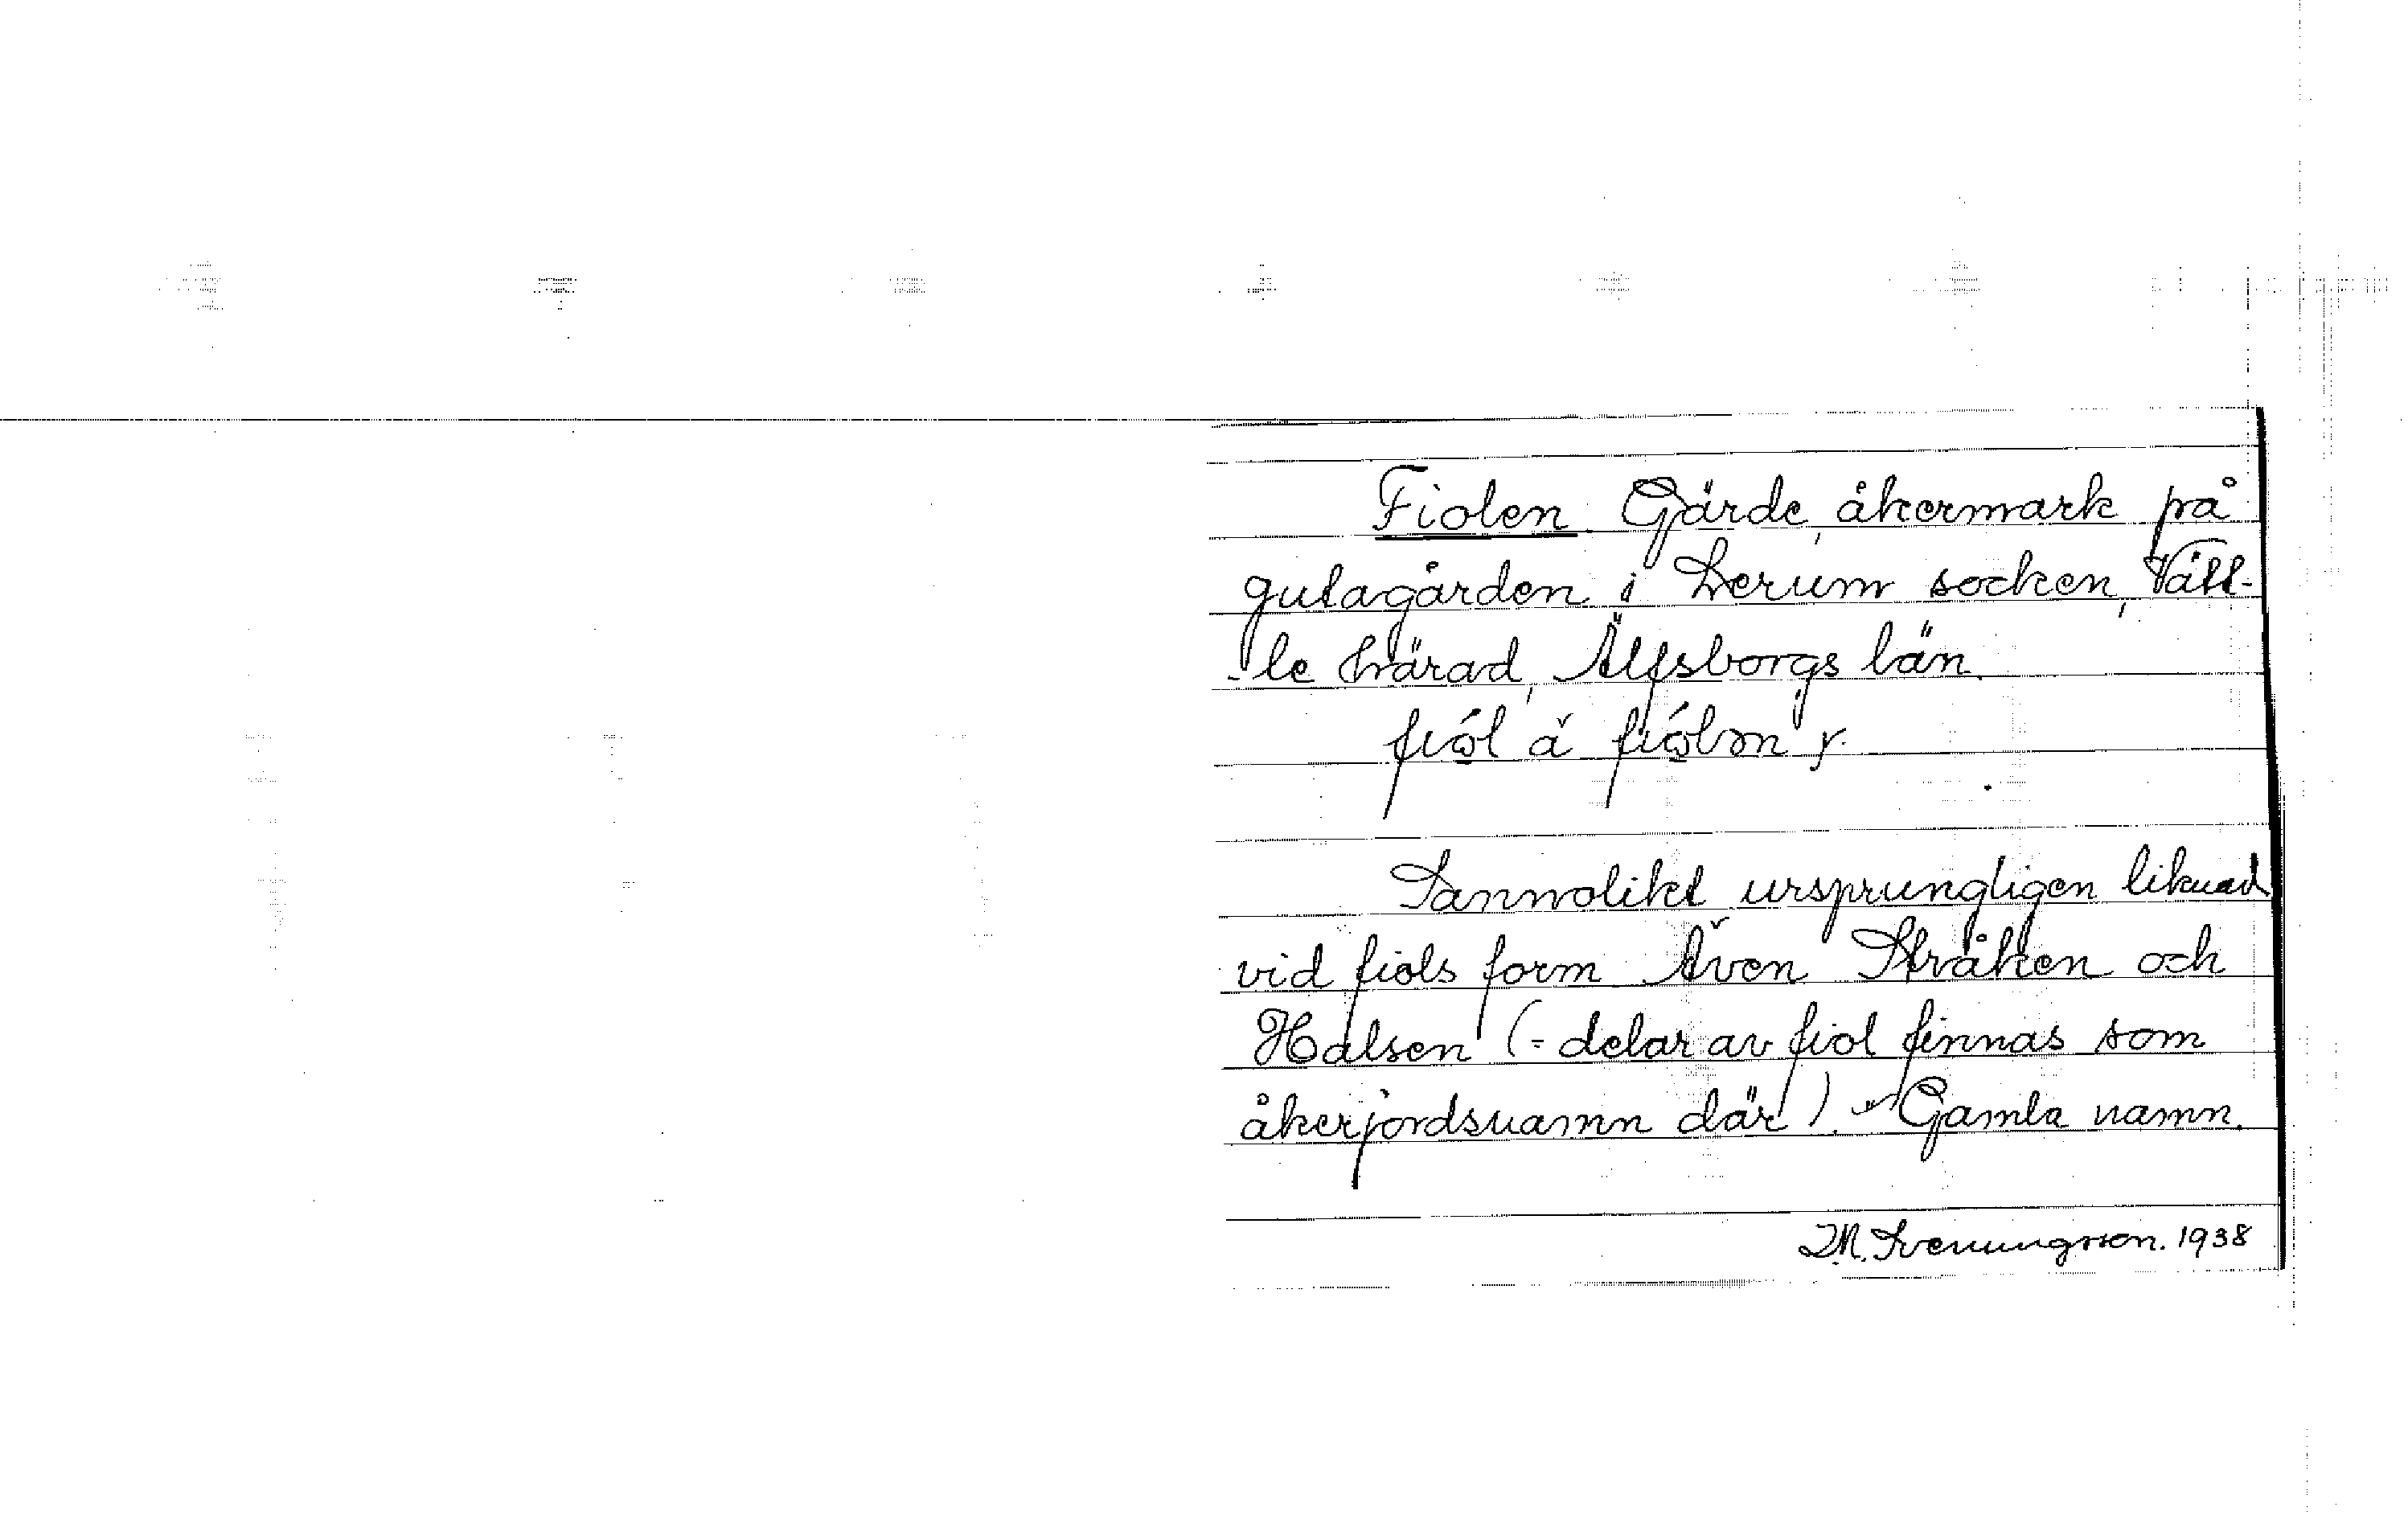 Fiolen. Gärde, åkermark på
gutagården i Lerum socken, Vätt-
-le härad, Älfsborgs län.
Sannolikt ursprungligen liknad
vid fiols form Även Stråken och
Halsen (= delar av fiol finnas som
åkerjordsnamn där). - Gamla namn.
I.M. Svenungsson. 1938